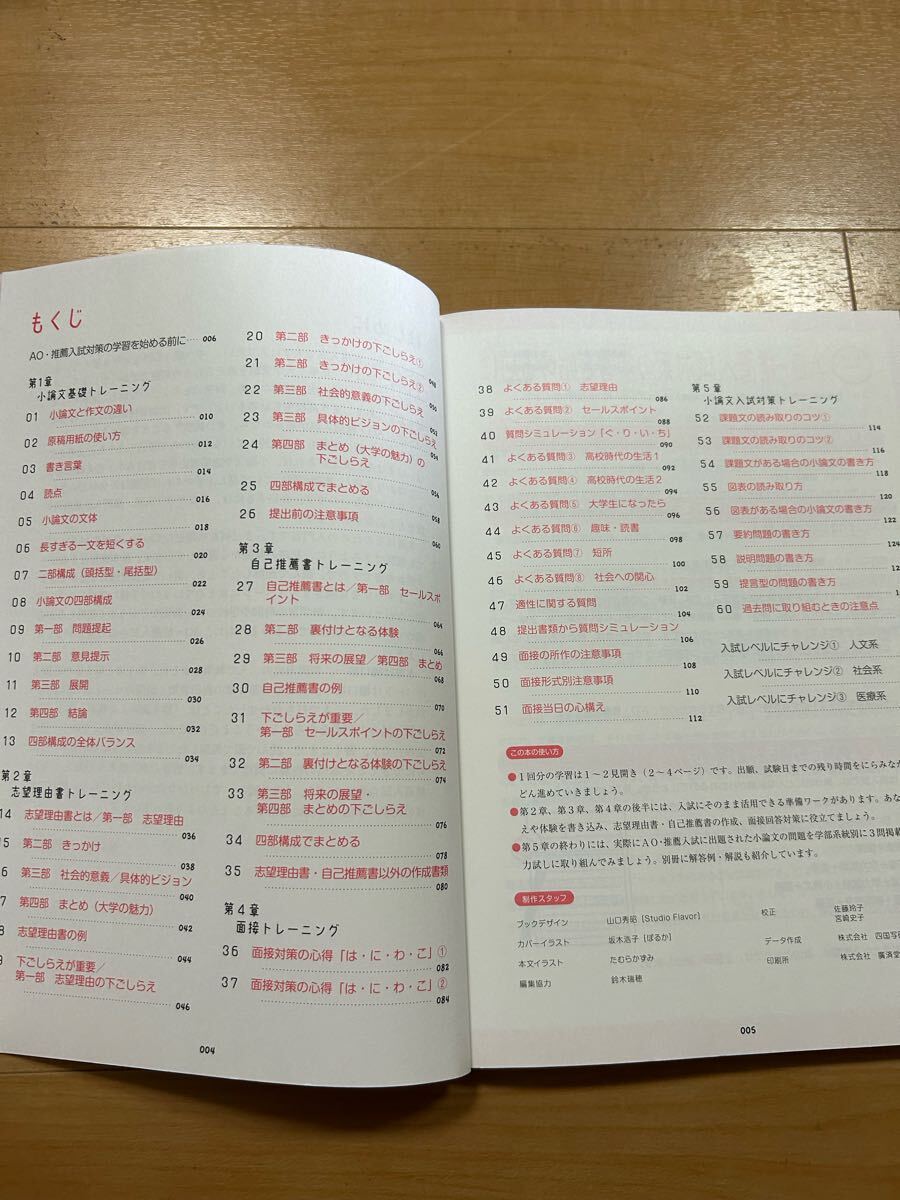 もくじ
AO・推薦入試対策の学習を始める前に…… 006
第1章
小論文基礎トレーニング
01 小論文と作文の違い
010
02 原稿用紙の使い方
012
03 書き言葉
014
04 読点
016
05 小論文の文体
018
06 長すぎる一文を短くする
020
07 二部構成（頭括型・尾括型）
022
08 小論文の四部構成
024
09 第一部 問題提起
026
10 第二部 意見提示
028
11 第三部 展開
030
12 第四部 結論
032
13 四部構成の全体バランス
034
第2章
志望理由書トレーニング
14 志望理由書とは／第一部 志望理由
036
15 第二部 きっかけ
038
6 第三部 社会的意義／具体的ビジョン
040
7 第四部 まとめ（大学の魅力）
042
8 志望理由書の例
044
9 下ごしらえが重要／
第一部 志望理由の下ごしらえ
046
20 第二部 きっかけの下ごしらえ①
21 第二部 きっかけの下ごしらえ②
048
22 第三部 社会的意義の下ごしらえ
050
23 第三部 具体的ビジョンの下ごしらえ
052
24 第四部 まとめ（大学の魅力）の
下ごしらえ
054
25 四部構成でまとめる
056
26 提出前の注意事項
058
060
第3章
自己推薦書トレーニング
27 自己推薦書とは／第一部 セールスポ
イント
064
28 第二部 裏付けとなる体験
066
29 第三部 将来の展望／第四部 まとめ
068
30 自己推薦書の例
070
31 下ごしらえが重要／
第一部 セールスポイントの下ごしらえ
072
32 第二部 裏付けとなる体験の下ごしらえ
074
33 第三部 将来の展望・
第四部 まとめの下ごしらえ
076
34 四部構成でまとめる
078
35 志望理由書・自己推薦書以外の作成書類
080
第4章
面接トレーニング
36 面接対策の心得「は・に・わ・こ」①
082
37 面接対策の心得「は・に・わ・こ」②
084
004
38 よくある質問① 志望理由
086
39 よくある質問② セールスポイント
088
40 質問シミュレーション「ぐ・り・い・ち」
090
41 よくある質問③ 高校時代の生活1
092
42 よくある質問④ 高校時代の生活2
094
43 よくある質問⑤ 大学生になったら
096
44 よくある質問⑥ 趣味・読書
098
45 よくある質問⑦ 短所
100
46 よくある質問⑧ 社会への関心
102
47 適性に関する質問
104
48 提出書類から質問シミュレーション
106
49 面接の所作の注意事項
108
50 面接形式別注意事項
110
51 面接当日の心構え
112
第5章
小論文入試対策トレーニング
52 課題文の読み取りのコツ①
114
53 課題文の読み取りのコツ②
116
54 課題文がある場合の小論文の書き方
118
55 図表の読み取り方
120
56 図表がある場合の小論文の書き方
122
57 要約問題の書き方
124
58 説明問題の書き方
12
59 提言型の問題の書き方
12
60 過去問に取り組むときの注意点
入試レベルにチャレンジ① 人文系
入試レベルにチャレンジ② 社会系
入試レベルにチャレンジ③ 医療系
この本の使い方
●1回分の学習は1〜2見開き（2〜4ページ）です。出願、試験日までの残り時間をにらみなが
どん進めていきましょう。
●第2章、第3章、第4章の後半には、入試にそのまま活用できる準備ワークがあります。あな
えや体験を書き込み、志望理由書・自己推薦書の作成、面接回答対策に役立てましょう。
●第5章の終わりには、実際にAO・推薦入試に出題された小論文の問題を学部系統別に3問掲載
力試しに取り組んでみましょう。別冊に解答例・解説も紹介しています。
制作スタッフ
ブックデザイン 山口秀昭（Studio Flavor）
カバーイラスト 坂木浩子（ぽるか）
本文イラスト たむらかずみ
編集協力 鈴木瑞穂
校正 佐藤玲子
宮崎史子
データ作成 株式会社 四国写研
印刷所 株式会社 廣済堂
005